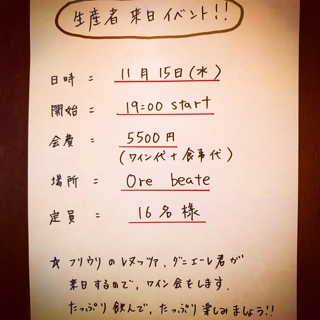 生産者 来日イベント!!
日時 = 11月15日(水)
開始 = 19:00 start
会費 = 5500円
(ワイン代+食事代)
場所 = Ore beate
定員 = 16名様
☆ フリウリのレヌッツァ、ダニエーレ君が
来日するので、ワイン会をします.
たっぷり飲んで、たっぷり楽しみましょう!!